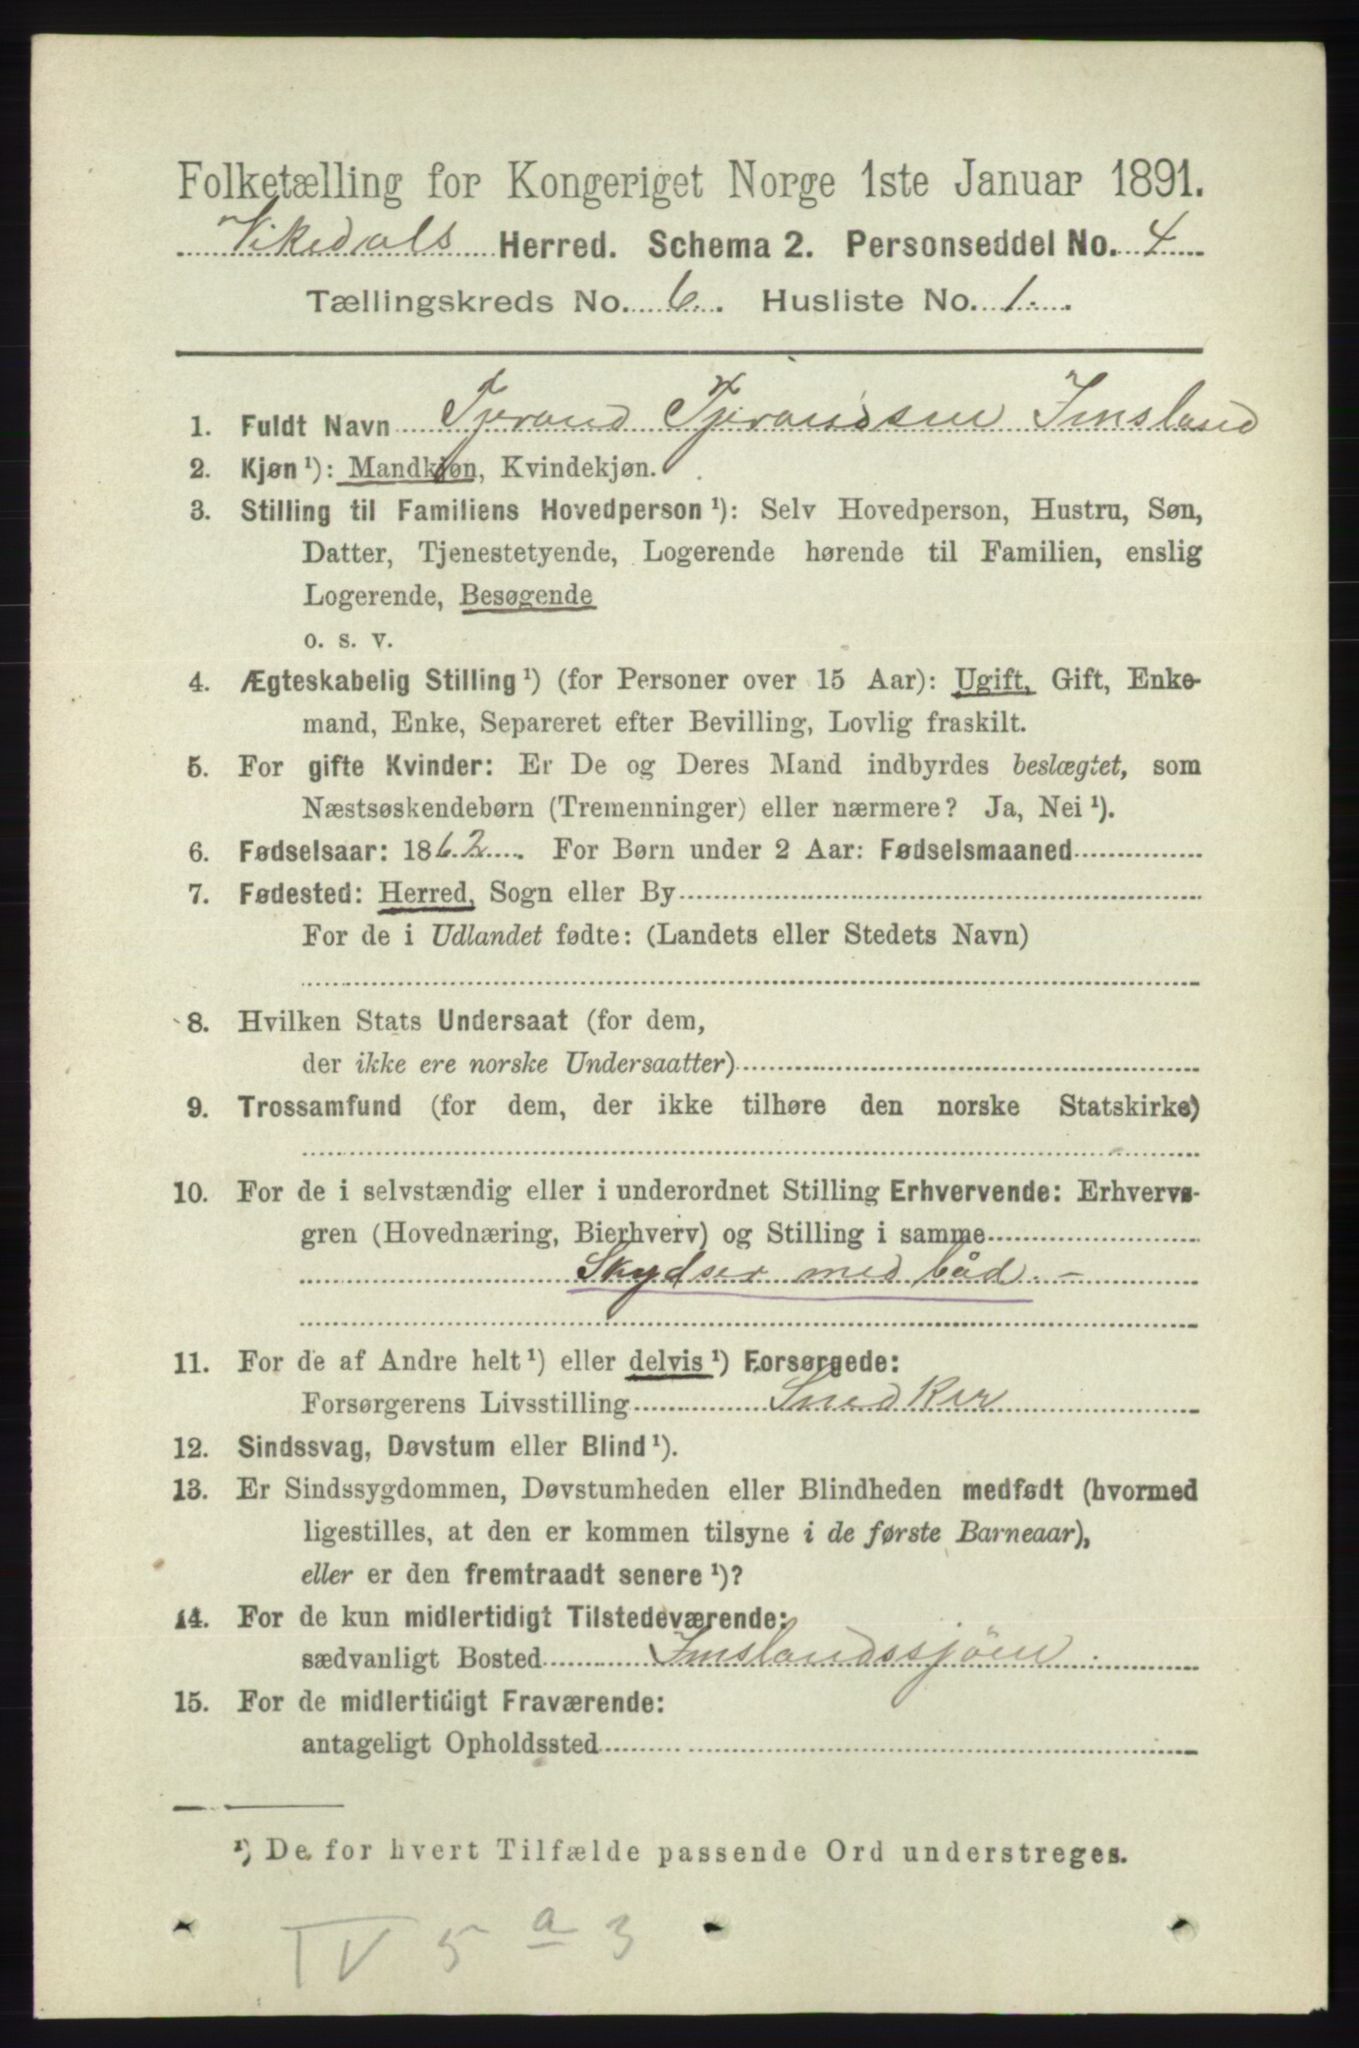 Folketælling for Kongeriget Norge 1ste Januar 1891.
Vikedals Herred. Schema 2. Personseddel No. 4
Tællingskreds No. 6. Husliste No. 1.
1. Fuldt Navn Tjerand Tjerandsen Imsland
2. Kjøn¹): Mandkjøn, Kvindekjøn.
3. Stilling til Familiens Hovedperson¹): Selv Hovedperson, Hustru, Søn,
Datter, Tjenestetyende, Logerende hørende til Familien, enslig
Logerende, Besøgende
o. s. v.
4. Ægteskabelig Stilling¹) (for Personer over 15 Aar): Ugift, Gift, Enke-
mand, Enke, Separeret efter Bevilling, Lovlig fraskilt.
5. For gifte Kvinder: Er De og Deres Mand indbyrdes beslægtet, som
Næstsøskendebørn (Tremenninger) eller nærmere? Ja, Nei¹).
6. Fødselsaar: 1862. For Børn under 2 Aar: Fødselsmaaned
7. Fødested: Herred, Sogn eller By
For de i Udlandet fødte: (Landets eller Stedets Navn)
8. Hvilken Stats Undersaat (for dem,
der ikke ere norske Undersaatter)
9. Trossamfund (for dem, der ikke tilhøre den norske Statskirke)
10. For de i selvstændig eller i underordnet Stilling Erhvervende: Erhvervs-
gren (Hovednæring, Bierhverv) og Stilling i samme
Skydser med båd. -
11. For de af Andre helt¹) eller delvis¹) Forsørgede:
Forsørgerens Livsstilling Snedker
12. Sindssvag, Døvstum eller Blind¹).
13. Er Sindssygdommen, Døvstumheden eller Blindheden medfødt (hvormed
ligestilles, at den er kommen tilsyne i de første Barneaar),
eller er den fremtraadt senere¹)?
14. For de kun midlertidigt Tilstedeværende:
sædvanligt Bosted Imslandssjøen
15. For de midlertidigt Fraværende:
antageligt Opholdssted
¹) De for hvert Tilfælde passende Ord understreges.
IV 5 a 3